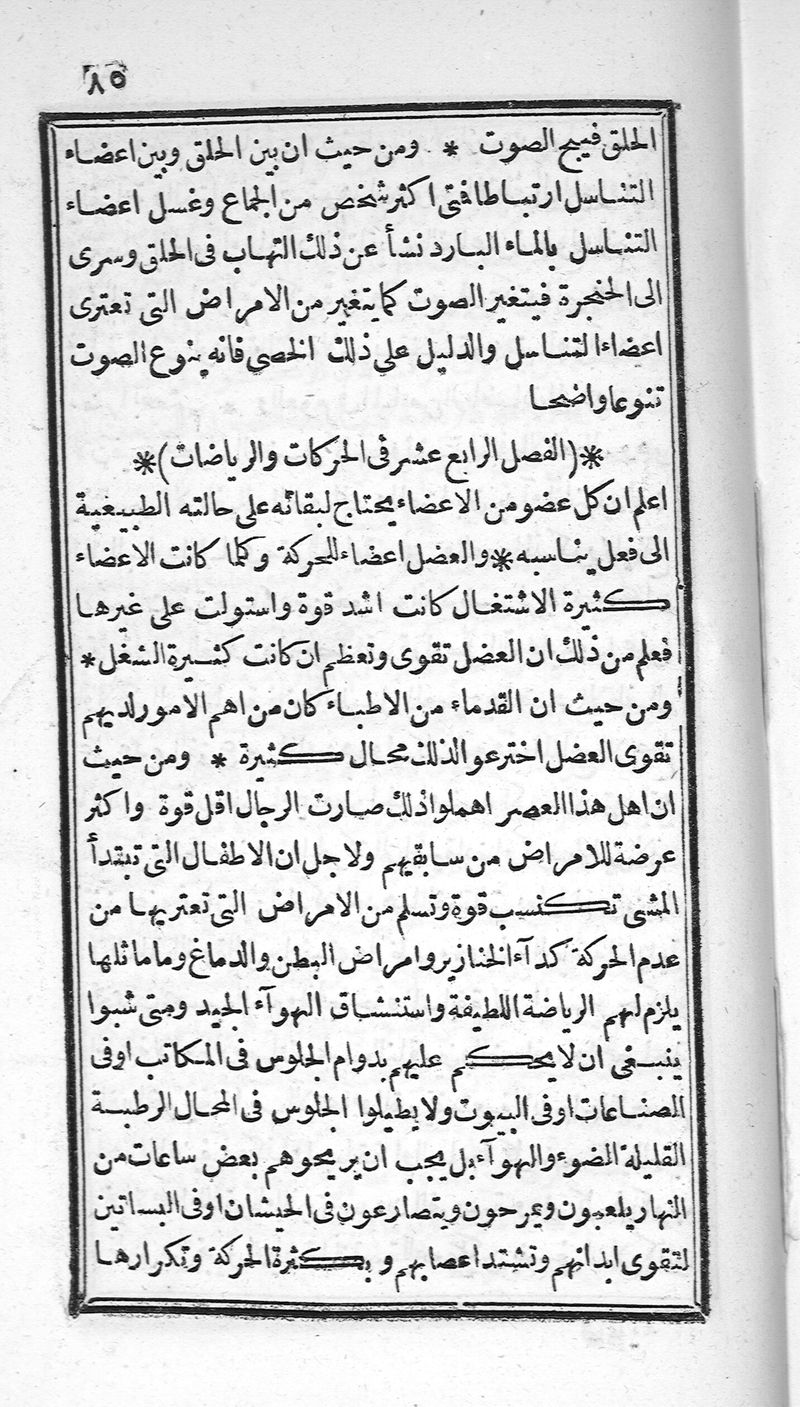 ٨٥
الحلق فيبح الصوت * ومن حيث ان بين الحلق وبين اعضاء
التناسل ارتباطا فتى اكثر شخص من الجماع وغسل اعضاء
التناسل بالماء البارد نشأ عن ذلك التهاب فى الحلق وسرى
الى الحنجرة فيتغير الصوت كما يتغير من الامراض التى تعترى
اعضاء التناسل والدليل على ذلك الخصى فانه ينوع الصوت
تنوعا واضحا
*(الفصل الرابع عشر فى الحركات والرياضات)*
اعلم ان كل عضو من الاعضاء يحتاج لبقائه على حالته الطبيعية
الى فعل يناسبه * والعضل اعضاء للحركة وكلما كانت الاعضاء
كثيرة الاشتغال كانت اشد قوة واستولت على غيرها
فعلم من ذلك ان العضل تقوى وتعظم ان كانت كثيرة الشغل *
ومن حيث ان القدماء من الاطباء كان من اهم الامور لديهم
تقوى العضل اخترعوا لذلك محال كثيرة * ومن حيث
ان اهل هذا العصر اهملوا ذلك صارت الرجال اقل قوة واكثر
عرضة للامراض من سابقيهم ولاجل ان الاطفال التى تبتدأ
المشى تكتسب قوة وتسلم من الامراض التى تعتريها من
عدم الحركة كدآء الخنازير وامراض البطن والدماغ وما ماثلها
يلزم لهم الرياضة اللطيفة واستنشاق الهوآء الجيد ومتى شبوا
ينبغى ان لا يحكم عليهم بدوام الجلوس فى المكاتب اوفى
الصناعات اوفى البيوت ولا يطيلوا الجلوس فى المحال الرطبة
القليلة الضوء والهوآء بل يجب ان يريحوهم بعض ساعات من
النهار يلعبون ويمرحون ويتصارعون فى الحيشان اوفى البساتين
لتقوى ابدانهم وتشتد اعصابهم وبكثرة الحركة وتكرارها